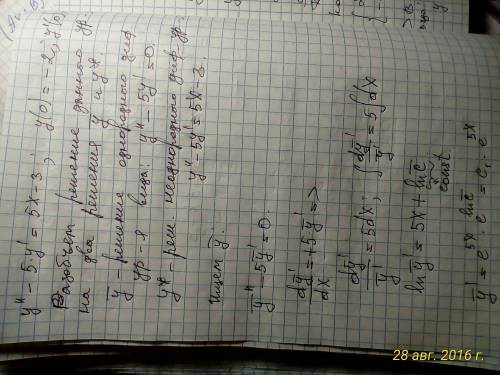 y'' - 5·y' = 5x - 3 ; y(0) = -2; y'(0)
Разобьем решение данного ур.
на два решения ȳ и y*.
ȳ - решение однородного диф.
ур-я вида: y'' - 5y' = 0.
y* - реш. неоднородного диф. ур.:
y'' - 5y' = 5x - 3.
Ищем ȳ.
ȳ'' - 5ȳ' = 0.
dȳ'/dx = +5ȳ' =>
dȳ'/ȳ' = 5dx; ∫ dȳ'/ȳ' = 5∫dx
ln ȳ' = 5x + ln c̄
const
ȳ' = e^5x · e^ln c̄ = c₁ · e^5x
28 авг. 2016 г.